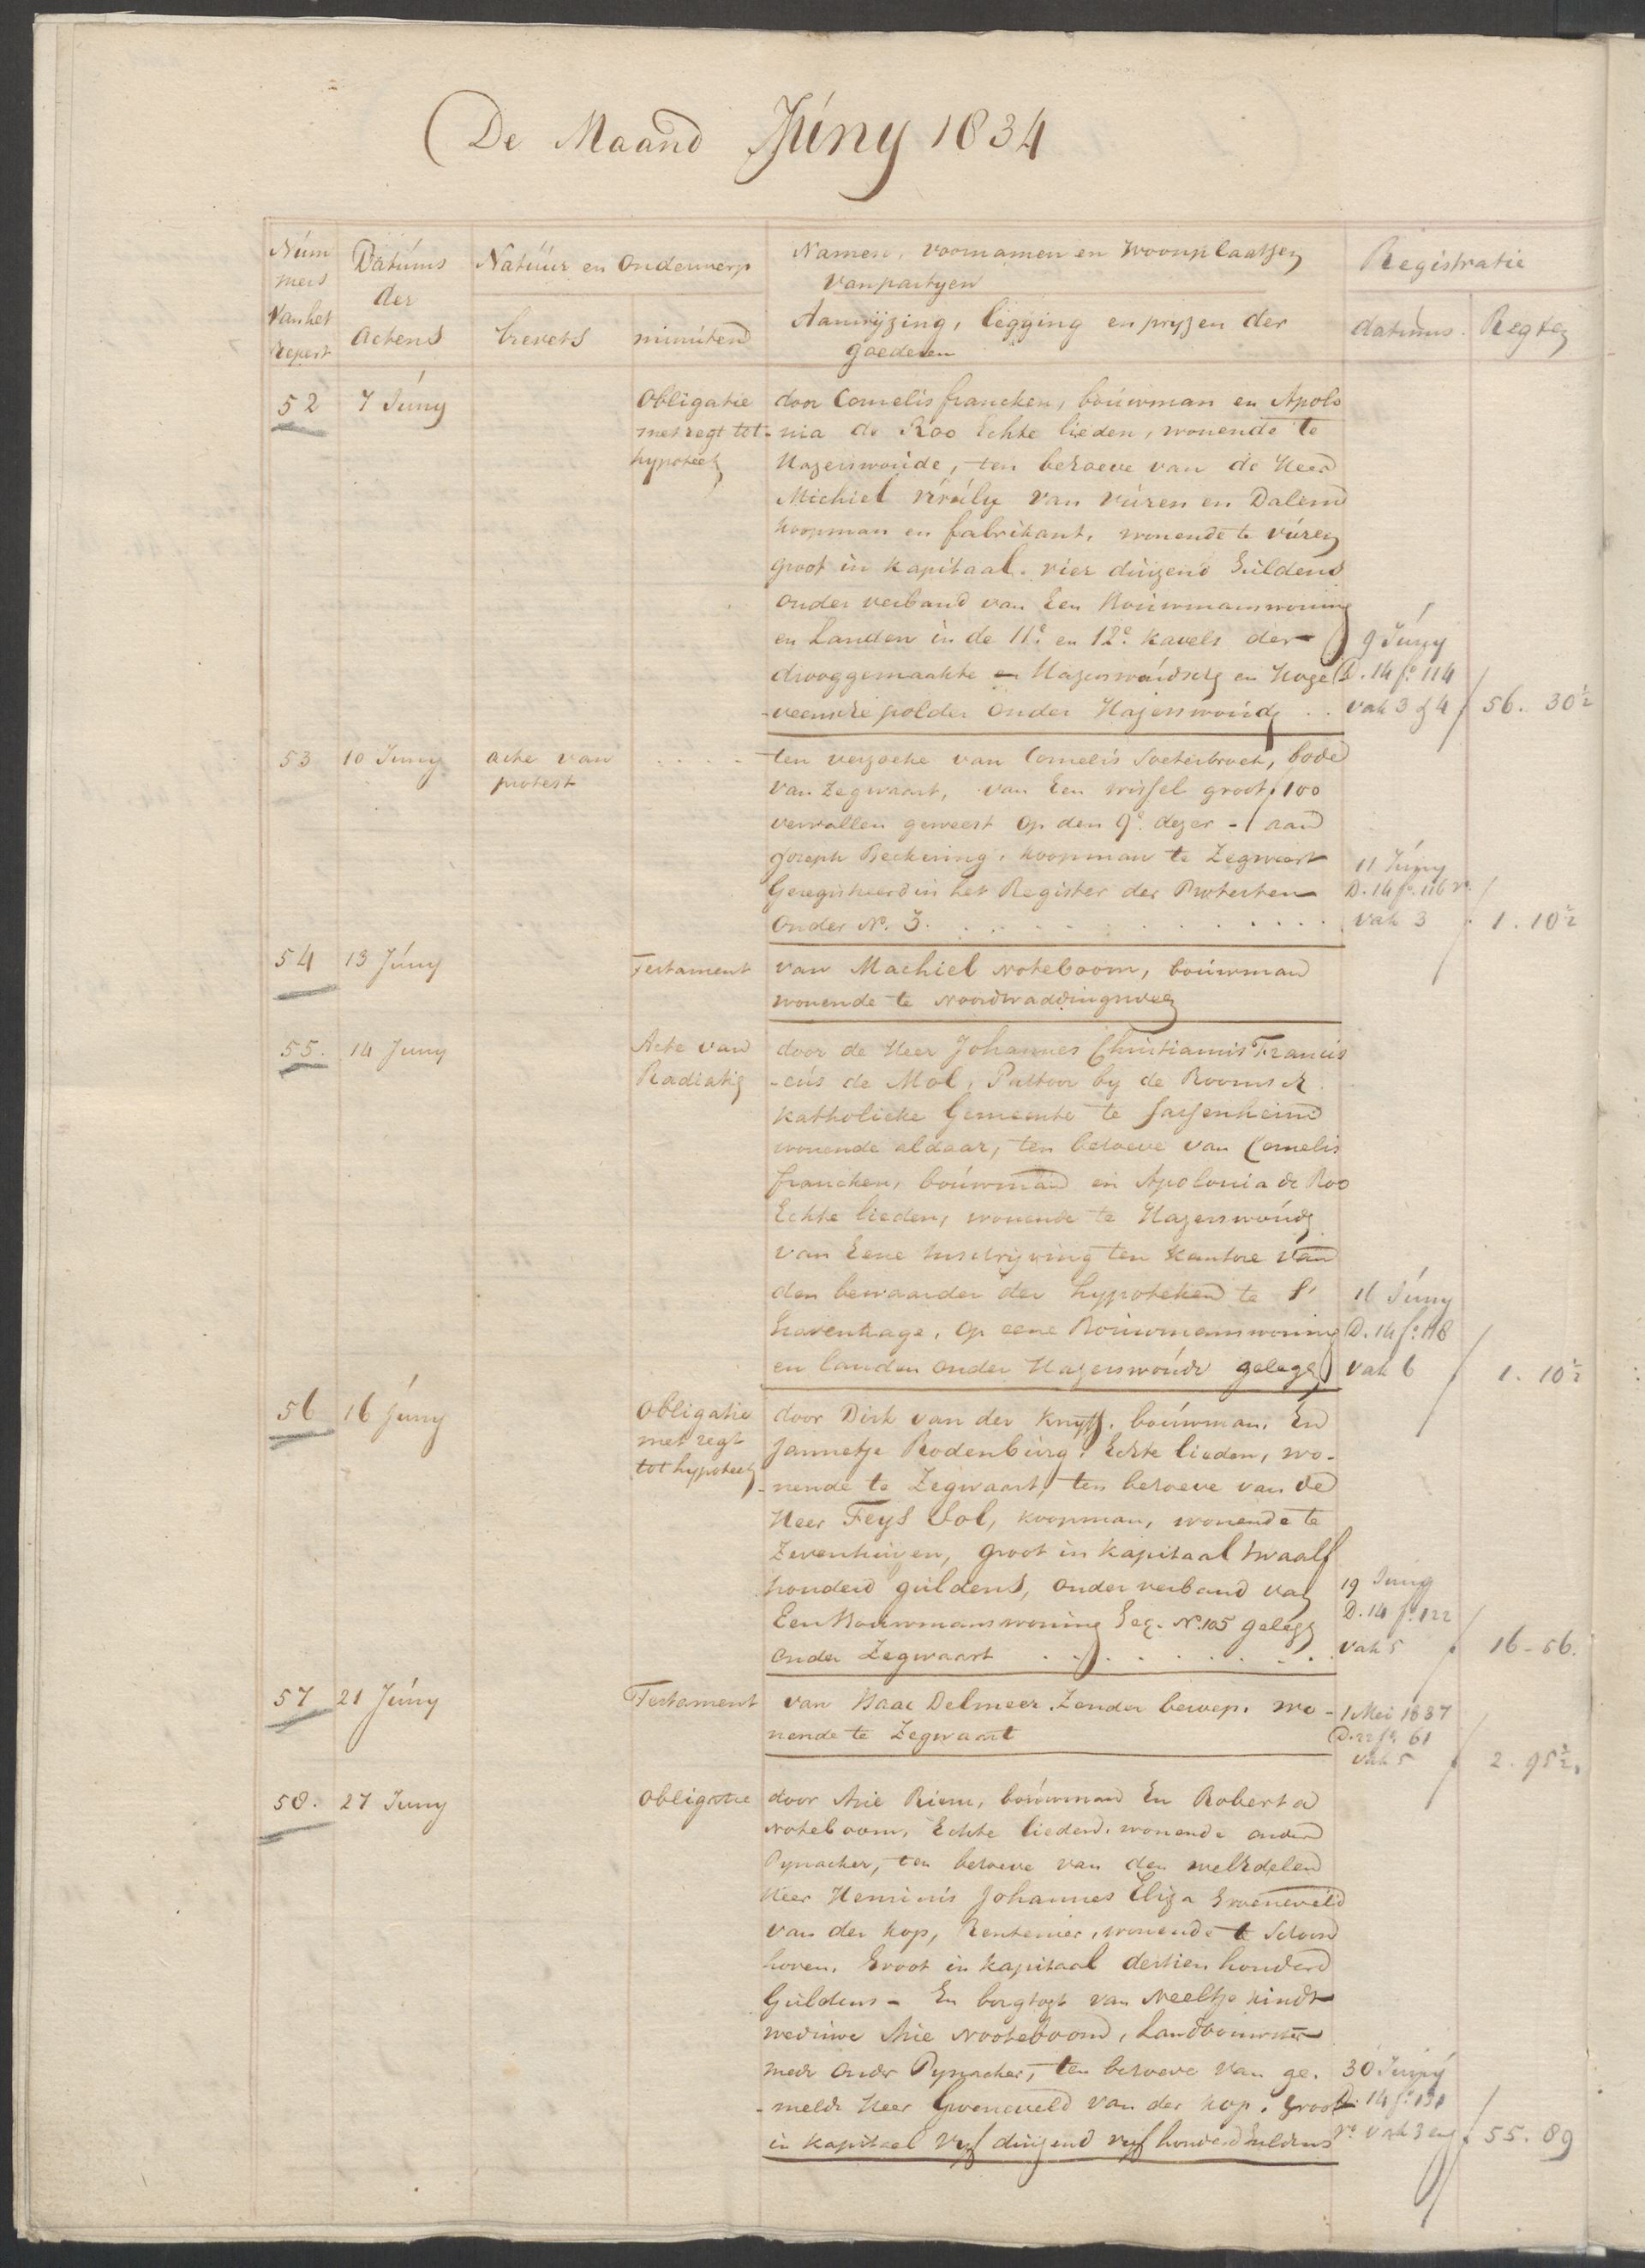 De Maand Júny 1834
Núm
mers
van het
Repert
Datúms
der
Actens
Natúúr en Onderwerp
brevets
minúten
Namen, voornamen en woonplaatsen
van partyen
Aanwijzing, ligging en pryzen der
goederen
Registratie
datúms. Regten
52 7 Júny
Obligatie
met regt tot
hypoteek
door Cornelis francken, boúwman en Apolo
nia de Roo Echte lieden, wonende te
Hazerswoúde, ten behoeve van de Heer
Michiel Viruly van Vúren en Dalem
koopman en fabrikant, wonende te Vúren
groot in kapitaal vier dúizend Gúldens
onder verband van Een Boúwmanswoning
en Landen in de 11e. en 12e. kavels der
drooggemaakte en Hazerswoúdsche en Hoge
-veensche polder onder Hazerswoúde . .
9 Júny
D. 14 fo. 114
vak 3 & 4
56. 30½
53 10 Juny
acte van
protest
. . . . .
ten verzoeke van Cornelis Soeterbroek, bode
van Zegwaart, van Een wissel groot ƒ 100
vervallen geweest op den 9e. dezer - aan
Joseph Beckering, koopman te Zegwaart
Geregistreerd in het Register der Protesten
onder No. 3. . . . . . . . . . .
11 Júny
D. 14 fo. 116 vo.
vak 3
1. 10½
54 13 Júny
Testament
van Machiel Noteboom, boúwman
wonende te Noordwaddingsveen
55. 14 Juny
Acte van
Radiatie
door de Heer Johannes Christianús Francis
-cús de Mol, Pastoor by de Roomsch
katholieke Gemeente te Sassenheim
wonende aldaar, ten behoeve van Cornelis
francken, boúwman en Apolonia de Roo
Echte lieden, wonende te Hazerswoúde
van Eene Inschrijving ten kantore van
den bewaarder der hypoteken te S'
Gravenhage, op eene Boúwmanswoning
en landen onder Hazerswoúde gelegen
16 Júny
D. 14 fo. 118
vak 6
1. 10½
56 16 Júny
Obligatie
met regt
tot hypoteek
door Dirk van der Knyff, boúwman, En
Jannetje Rodenbúrg, Echte lieden, wo-
-nende te Zegwaart, ten behoeve van de
Heer Feys Sol, koopman, wonende te
Zevenhúizen, groot in kapitaal twaalf
honderd gúldens, onder verband van
Een Boúwmanswoning Geq. No. 105 gelegen
onder Zegwaart . . . . . . . .
19 Júny
D. 14 fo. 122
vak 5
16 - 56.
57 21 Júny
Testament
van Isaac Delmeer, Zonder beroep, wo-
nende te Zegwaart
1 Mei 1837
D. 22 fo. 61
vak 5
2. 95½.
58. 27 Juny
Obligatie
door Arie Riem, boúwman En Roberta
Noteboom, Echte lieden, wonende onder
Pynacker, ten behoeve van den weledelen
Heer Henricús Johannes Eliza Groeneveld
van der Kop, Rentenier, wonende te Schoon
hoven, Groot in kapitaal dertien honderd
Gúldens - En borgtogt van Neeltje Kindt
wedúwe Arie Nooteboom, Landboúwster
mede onder Pynacker, ten behoeve van ge-
-melde Heer Groeneveld van der Kop, Groot
in kapitaal vyf dúizend vyf honderd Guldens
30 Júny
D. 14 fo. 131
vo. vak 3 en
55. 89